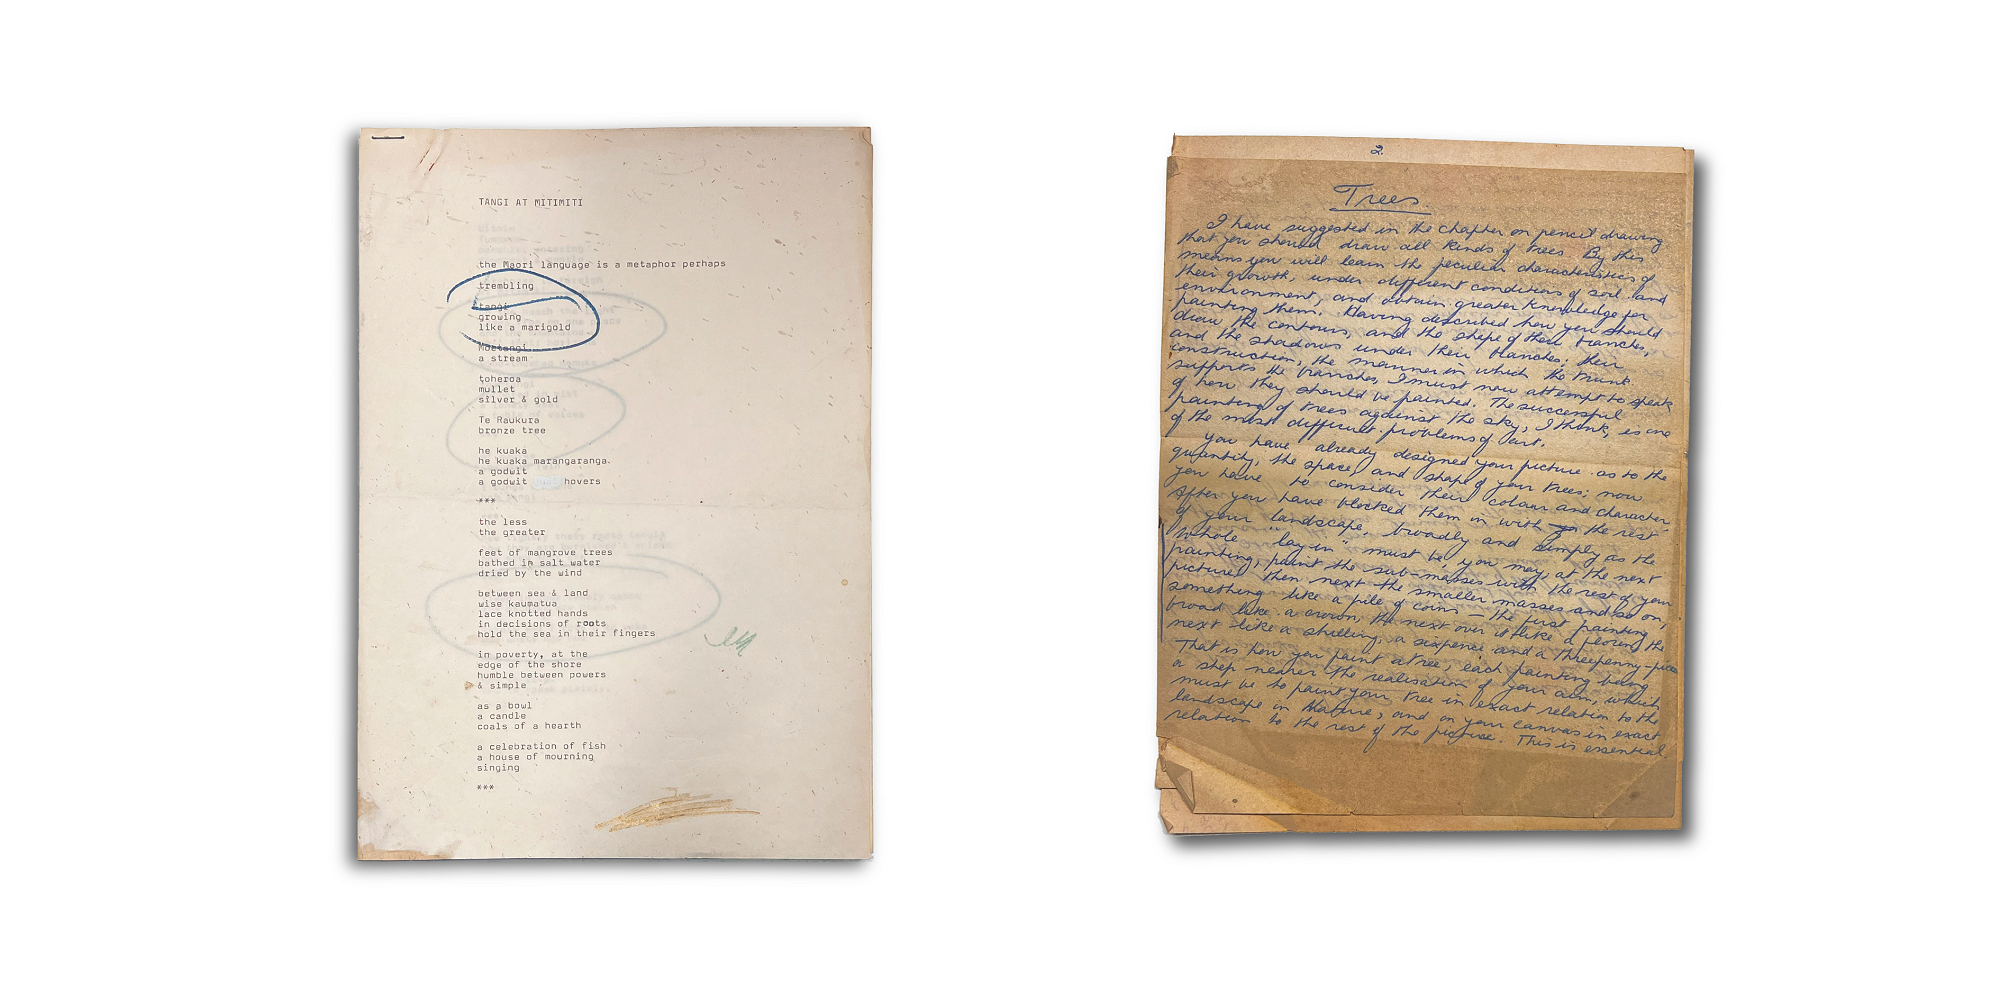 TANGI AT MITIMITI
the Maori language is a metaphor perhaps
trembling
tangi
growing
like a marigold
Moetangi
a stream
toheroa
mullet
silver & gold
Te Raukura
bronze tree
he kuaka
he kuaka marangaranga.
a godwit
a godwit hovers
***
the less
the greater
feet of mangrove trees
bathed in salt water
dried by the wind
between sea & land
wise kaumatua
lace knotted hands
in decisions of roots
hold the sea in their fingers
in poverty, at the
edge of the shore
humble between powers
& simple
as a bowl
a candle
coals of a hearth
a celebration of fish
a house of mourning
singing
***
2.
Trees.
I have suggested in the chapter on pencil drawing
that you should draw all kinds of trees. By this
means you will learn the peculiar characteristics of
their growth, under different conditions of soil and
environment, and obtain greater knowledge for
painting them. Having described how you should
draw the contours, and the shape of their branches,
and the shadows under their branches; their
construction, the manner in which the trunk
supports the branches, I must now attempt to speak
of how they should be painted. The successful
painting of trees against the sky, I think, is one
of the most difficult problems of art.
You have already designed your picture as to the
quantity, the space, and shape of your trees; now
you have to consider their colour and character.
After you have blocked them in with the rest
of your landscape, broadly and simply as the
whole "lay in" must be, you may, at the next
painting, paint the sub-masses with the rest of your
picture, then next the smaller masses and so on,
something like a pile of coins — the first painting
broad like a crown, the next over it like a florin, the
next like a shilling, a sixpence and a threepenny-piece
That is how you paint a tree, each painting being
a step nearer the realisation of your aim, which
must be to paint your tree in exact relation to the
landscape in Nature, and on your canvas in exact
relation to the rest of the picture. This is essential